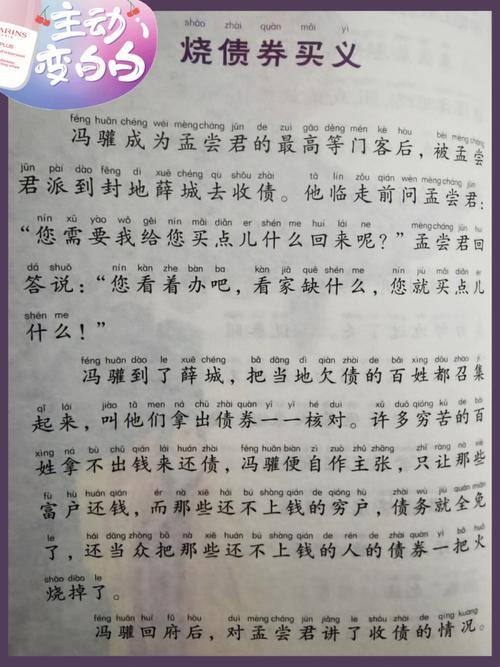 CLARINS
PLUS
主动
变白白
shāo zhài quàn mǎi yì
烧债券买义
féng huān chéng wéi mèng cháng jūn de zuì gāo děng mén kè hòu bèi mèng cháng
冯驩成为孟尝君的最高等门客后，被孟尝
jūn pài dào fēng dì xuē chéng qù shōu zhài tā lín zǒu qián wèn mèng cháng jūn
君派到封地薛城去收债。他临走前问孟尝君：
nín xū yào wǒ gěi nín mǎi diǎn er shén me huí lái ne mèng cháng jūn huí
“您需要我给您买点儿什么回来呢？”孟尝君回
dá shuō nín kàn zhe bàn ba kàn jiā quē shén me nín jiù mǎi diǎn er
答说：“您看着办吧，看家缺什么，您就买点儿
shén me
什么！”
féng huān dào le xuē chéng bǎ dāng dì qiàn zhài de bǎi xìng dōu zhào jí
冯驩到了薛城，把当地欠债的百姓都召集
qǐ lái jiào tā men ná chū zhài quàn yī yī hé duì xǔ duō qióng kǔ de bǎi
起来，叫他们拿出债券一一核对。许多穷苦的百
xìng ná bù chū qián lái huán zhài féng huān biàn zì zuò zhǔ zhāng zhǐ ràng nà xiē
姓拿不出钱来还债，冯驩便自作主张，只让那些
fù hù huán qián ér nà xiē huán bú shàng qián de qióng hù zhài wù jiù quán miǎn
富户还钱，而那些还不上钱的穷户，债务就全免
le hái dāng zhòng bǎ nà xiē huán bú shàng qián de rén de zhài quàn yì bǎ huǒ
了，还当众把那些还不上钱的人的债券一把火
shāo diào le
烧掉了。
féng huān huí fǔ hòu duì mèng cháng jūn jiǎng le shōu zhài de qíng kuàng
冯驩回府后，对孟尝君讲了收债的情况。